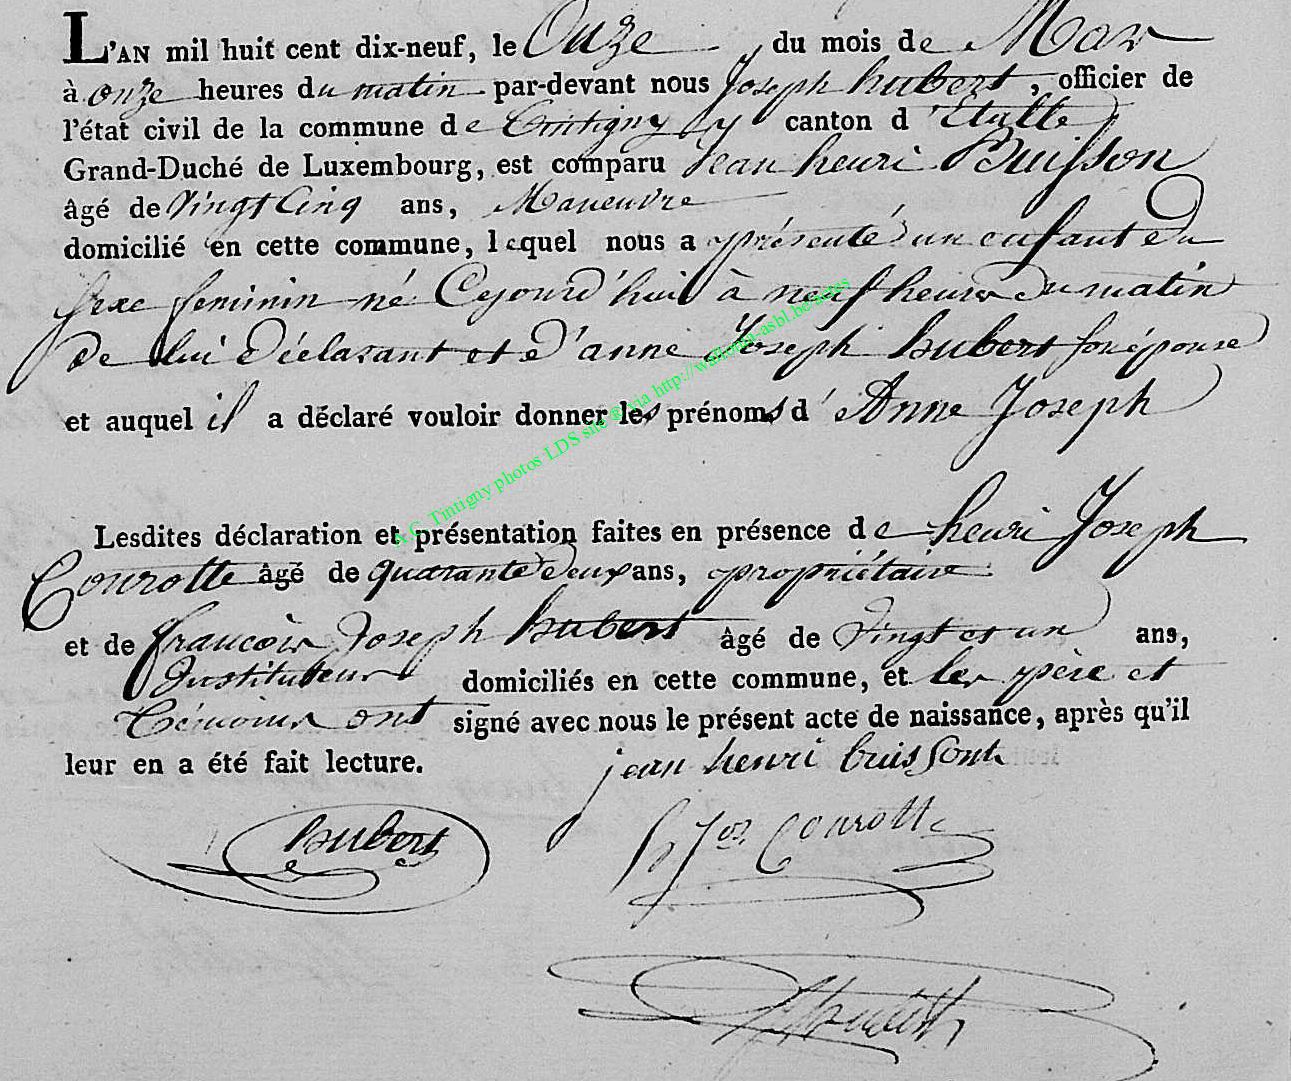 L'AN mil huit cent dix-neuf, le Onze du mois de Mars
à onze heures du matin par-devant nous Joseph hubert, officier de
l'état civil de la commune de Tintigny canton d'Etalle
Grand-Duché de Luxembourg, est comparu Jean henri Buisson
âgé de Vingt Cinq ans, Maneuvre
domicilié en cette commune, lequel nous a présenté un enfant du
sexe feminin né Cejourd'hui à neuf heures du matin
de lui déclarant et d'anne Joseph hubert son épouse
et auquel il a déclaré vouloir donner les prénoms d'Anne Joseph
Lesdites déclaration et présentation faites en présence de henri Joseph
Courotte âgé de quarante deux ans, propriétaire
et de francois Joseph hubert âgé de Vingt et un ans,
Instituteur domiciliés en cette commune, et les père et
Témoins ont signé avec nous le présent acte de naissance, après qu'il
leur en a été fait lecture.
jean henri buissont
hubert
h Jos Courotte
A.C. Tintigny photos LDS site via http://wallonia-asbl.be/actes